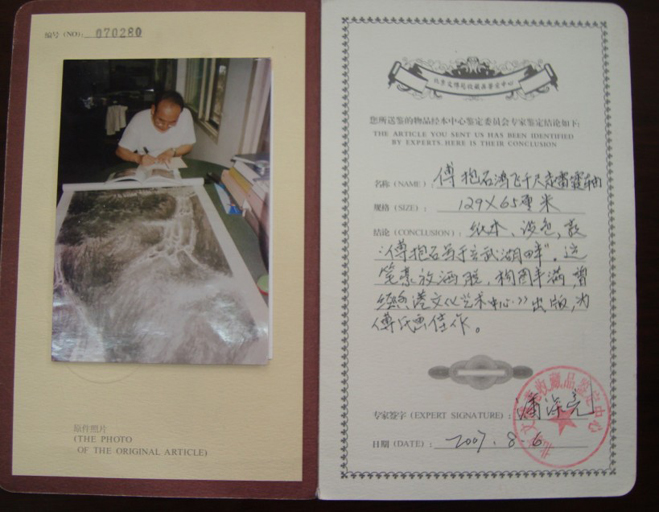 编号 (NO): 070280
原件照片
(THE PHOTO
OF THE ORIGINAL ARTICLE)
您所送鉴的物品经本中心鉴定委员会专家鉴定结论如下:
THE ARTICLE YOU SENT US HAS BEEN IDENTIFIED
BY EXPERTS. HERE IS THEIR CONCLUSION
名称 (NAME): 傅抱石鸿飞千尺
规格 (SIZE): 129X65厘米
结论 (CONCLUSION): 纸本、淡色,款
"傅抱石画于玄武湖畔". 这
笔墨放洒脱, 构图丰满 曾
港文化艺术中心》出版,为
傅氏画佳作。
专家签字 (EXPERT SIGNATURE): 潘深亮
日期 (DATE): 2007.8.6